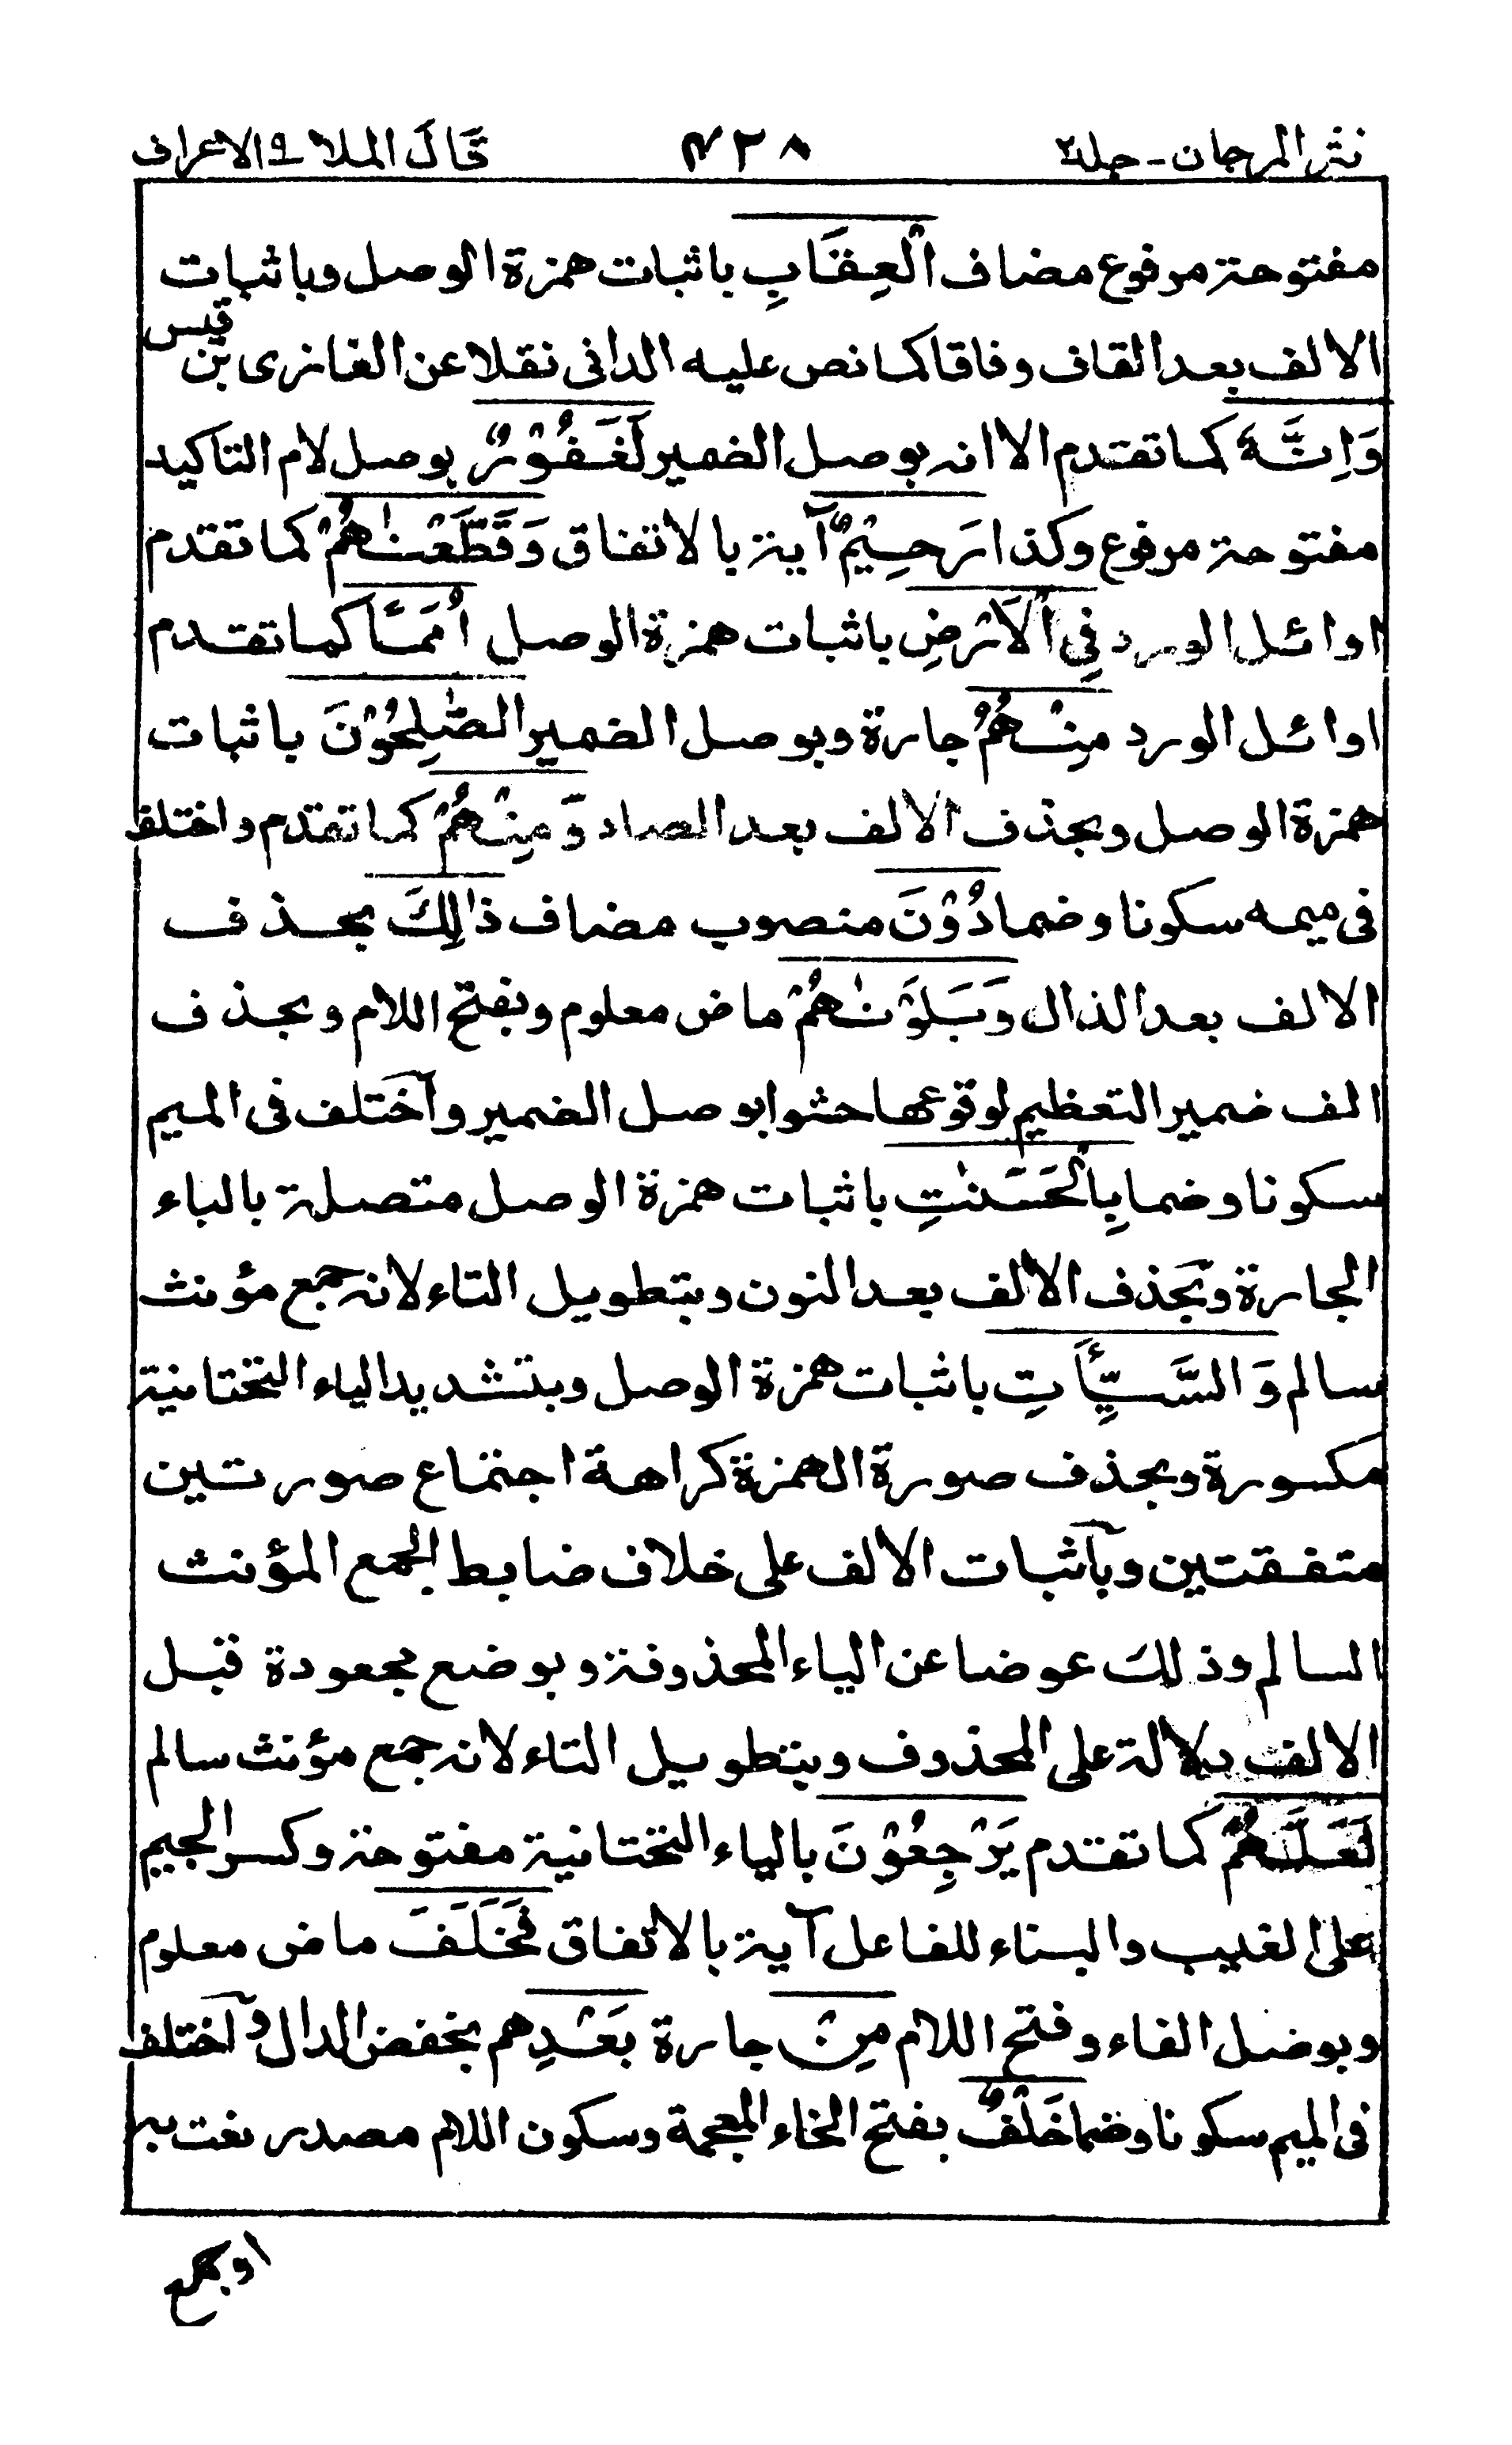 نثر المرجان - جلد ٢ ٤٢٨ قَالَ الملا ٩ الاعراف
مفتوحة مرفوع مضاف الْعِقَابِ باثبات همزة الوصل وباثبات
الالف بعد القاف وفاقا كما نص عليه الدانى نقلا عن الغازى بن قيس
وَاِنَّهٗ كما تقدم الا انه بوصل الضمير لَغَفُوْرٌ بوصل لام التاكيد
مفتوحة مرفوع وكذا رَحِيْمٌ آية بالاتفاق وَقَطَّعْنٰهُمْ كما تقدم
اوائل الورد فِي الْاَرْضِ باثبات همزة الوصل اُمَمًا كما تقدم
اوائل الورد مِنْهُمُ جارة وبوصل الضمير الصّٰلِحُوْنَ باثبات
همزة الوصل وبحذف الالف بعد الصاد وَمِنْهُمْ كما تقدم واختلف
فى ميمه سكونا وضما دُوْنَ منصوب مضاف ذٰلِكَ بحذف
الالف بعد الذال وَبَلَوْنٰهُمْ ماض معلوم وبفتح اللام وبحذف
الف ضمير التعظيم لوقوعها حشوا بوصل الضمير وآختلف فى الميم
سكونا وضما بِالْحَسَنٰتِ باثبات همزة الوصل متصلة بالباء
الجارة وبحذف الالف بعد النون وبتطويل التاء لانه جمع مؤنث
سالم وَالسَّيِّاٰتِ باثبات همزة الوصل وبتشديد الياء التحتانية
مكسورة وبحذف صورة الهمزة كراهة اجتماع صورتين
متفقتين وبآثبات الالف على خلاف ضابط الجمع المؤنث
السالم وذلك عوضا عن الياء المحذوفة وبوضع مجعودة قبل
الالف دلالة على المحذوف وبتطويل التاء لانه جمع مؤنث سالم
لَعَلَّهُمْ كما تقدم يَرْجِعُوْنَ بالياء التحتانية مفتوحة وكسر الجيم
على الغيب والبناء للفاعل آية بالاتفاق فَخَلَفَ ماض معلوم
وبوصل الفاء وفتح اللام مِنْ جارة بَعْدِهم بخفض الدال وآختلف
فى الميم سكونا وضما خَلْفٌ بفتح الخاء المعجمة وسكون اللام مصدر نعت به
اوجمع